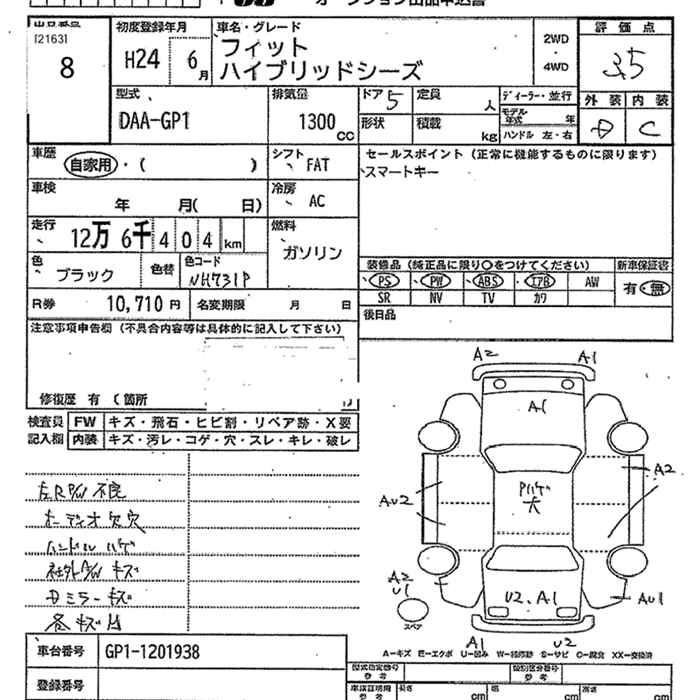 オークション出品申込書
出品番号
[2163]
8
初度登録年月
H24 6月
車名・グレード
フィット
ハイブリッドシーズ
2WD
4WD
評価点
3.5
外装 内装
D C
型式
DAA-GP1
排気量
1300 cc
ドア 5
定員 人
形状
積載 kg
ディーラー・並行
モデル年式 年
ハンドル 左・右
車歴
自家用・( )
シフト FAT
セールスポイント(正常に機能するものに限ります)
スマートキー
車検
年 月( 日)
冷房 AC
走行
12万 6千 4 0 4 km
燃料
ガソリン
色
ブラック
色替
色コード
NH731P
装備品(純正品に限り○をつけてください)
新車保証書
PS PW ABS エアB AW
SR NV TV カワ
有・無
R券 10,710 円
名変期限 月 日
後日品
注意事項申告欄(不具合内容等は具体的に記入して下さい)
修復歴 有(箇所
検査員
記入欄
FW キズ・飛石・ヒビ割・リペア跡・X要
内装 キズ・汚レ・コゲ・穴・スレ・キレ・破レ
左R P/W 不良
オーディオ欠穴
ハンドル ハゲ
社外A/W キズ
Dミラーキズ
各キズ凹
A2 A1
A1
A2
AU2
Pハゲ
大
A2
U1
U2、A1
AU1
スペア
A1 U2
A−キズ E−エクボ U−凹み W−補修跡 S−サビ C−腐食 XX−交換済
車台番号 GP1-1201938
登録番号
型式指定番号
参考
類別区分番号
参考
車検証明用
参考
長さ cm
幅 cm
高 cm